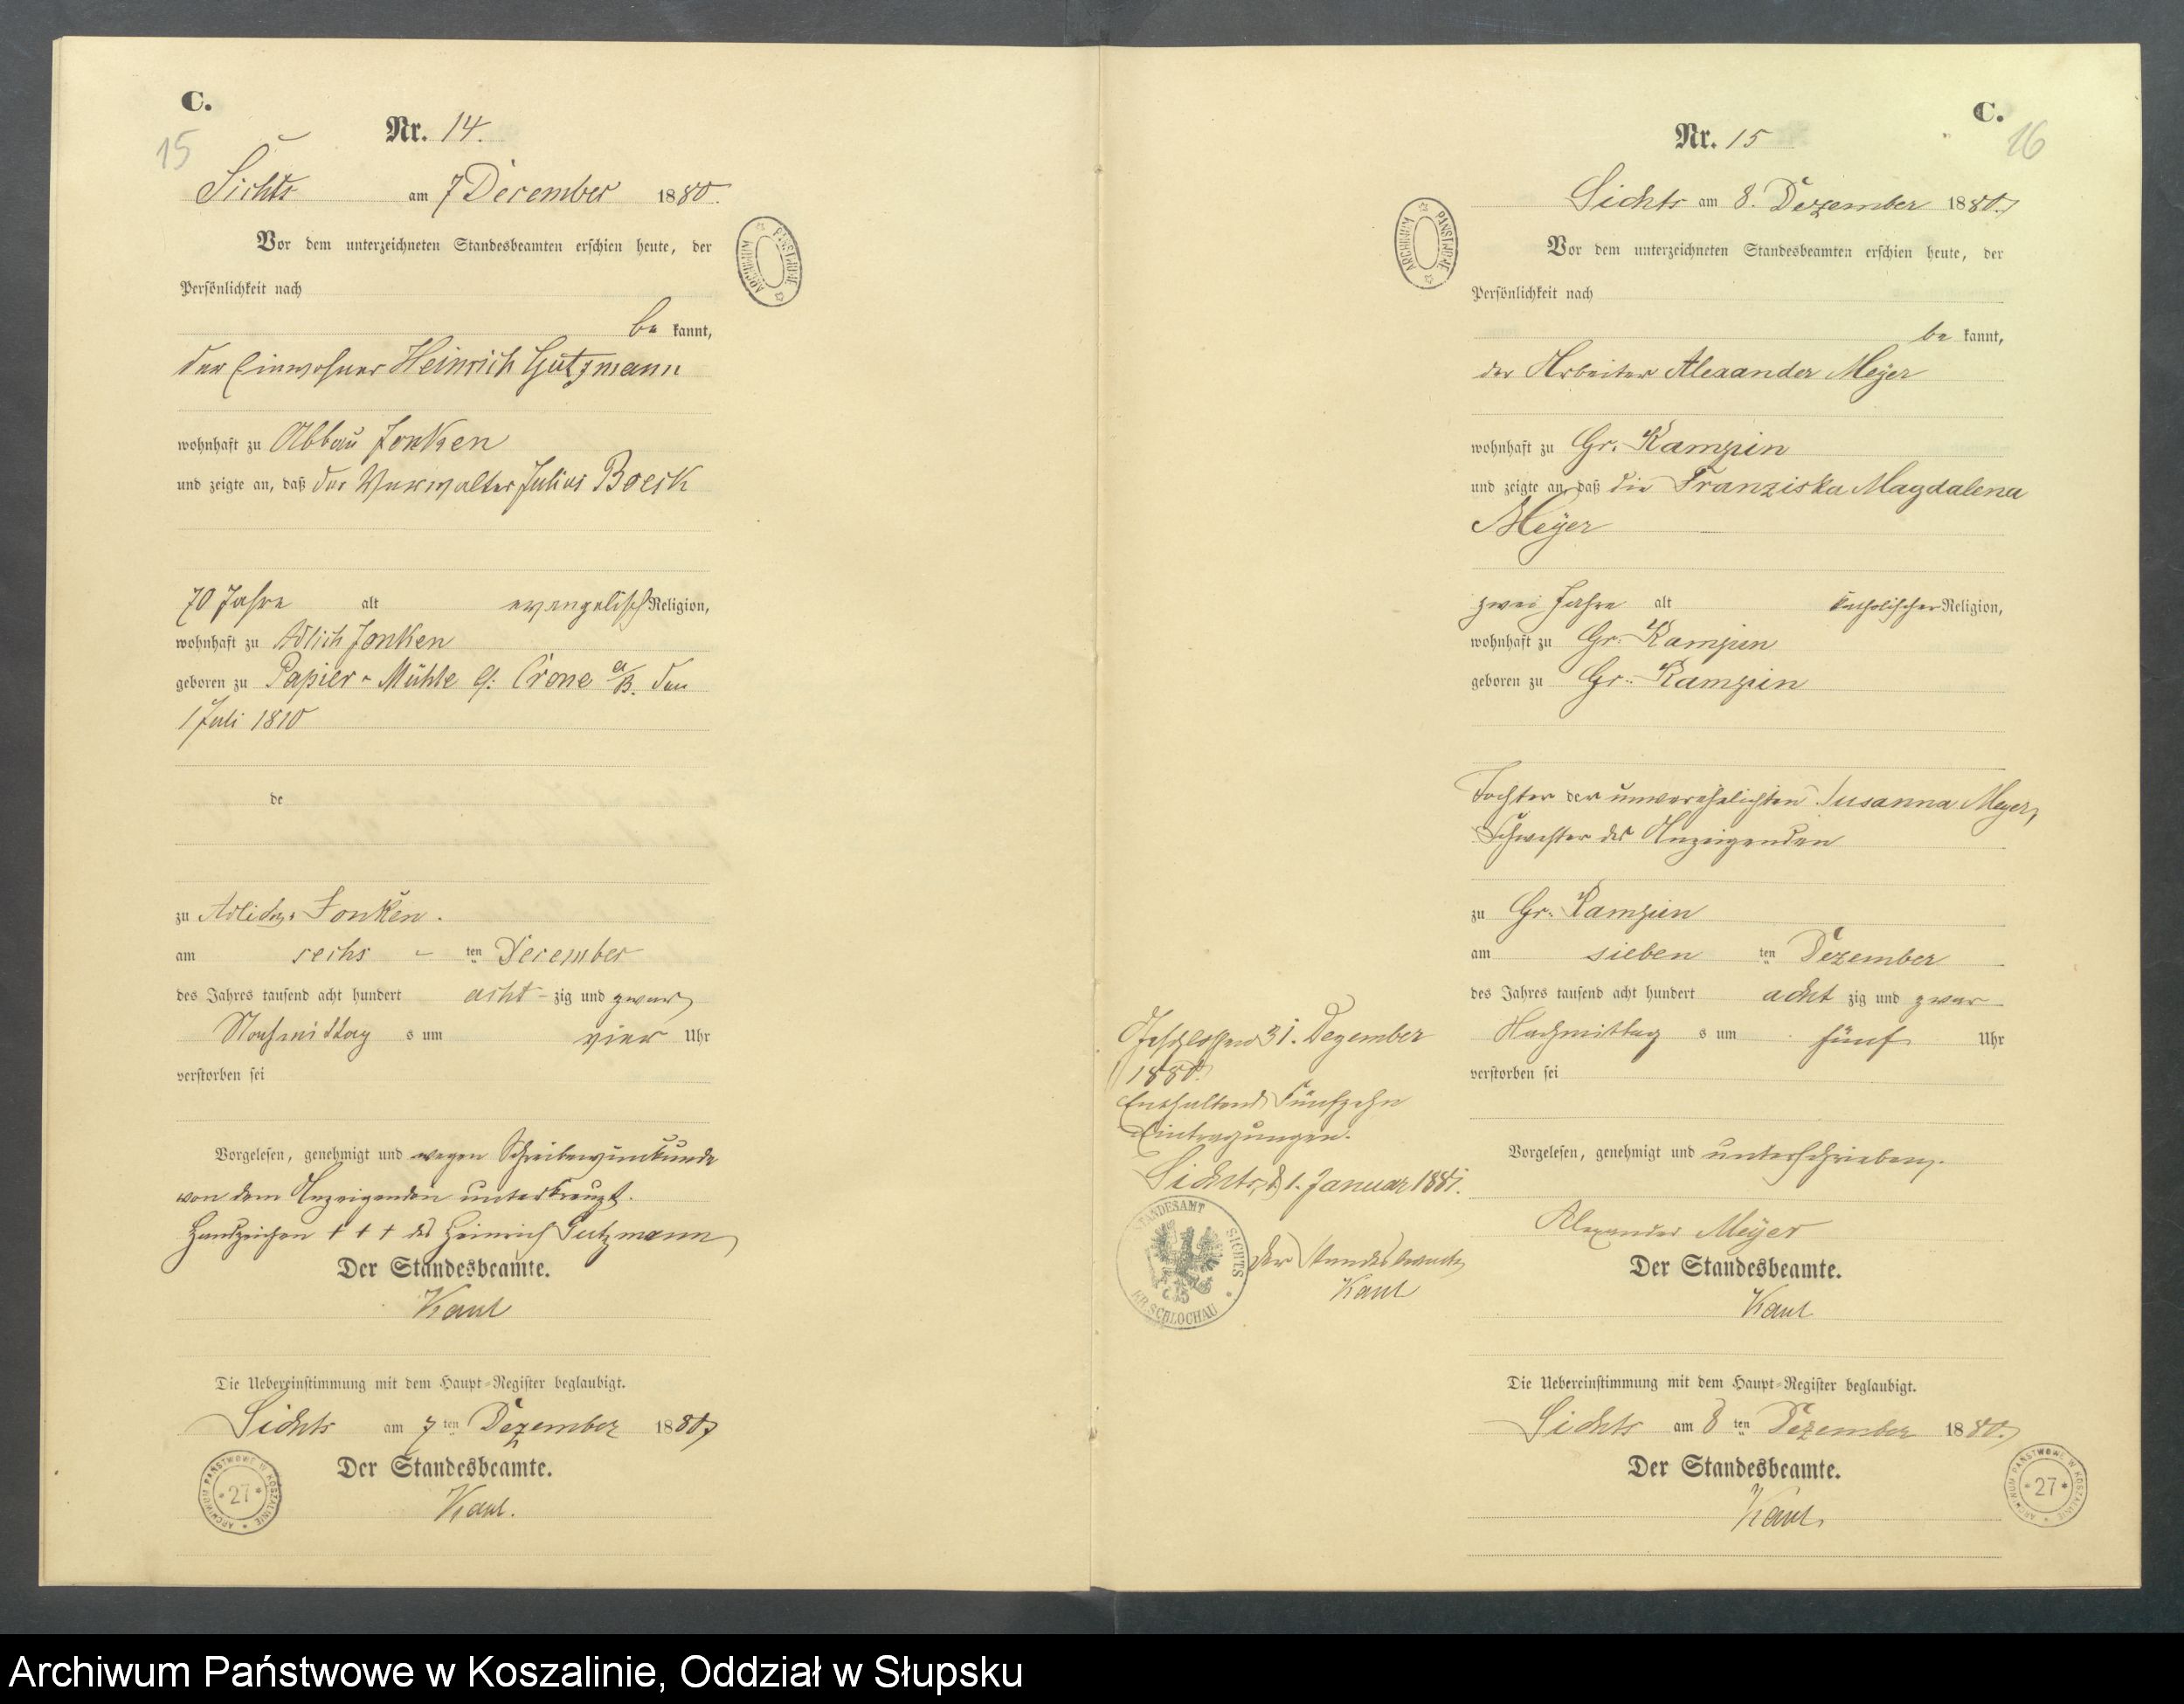 C.
15
Nr. 14.
Sichts am 7 December 1880.
Vor dem unterzeichneten Standesbeamten erschien heute, der
Persönlichkeit nach
be kannt,
der Einwohner Heinrich Gutzmann
wohnhaft zu Abbau Jonken
und zeigte an, daß der Verwalter Julius Boeck
70 Jahre alt evangelisch Religion,
wohnhaft zu Adlich Jonken
geboren zu Papier-Mühle Crone a/B. den
1 Juli 1810
de
zu Adlich Jonken.
am sechs - ten December
des Jahres tausend acht hundert acht - zig und zwar
Nachmittag s um vier Uhr
verstorben sei
Vorgelesen, genehmigt und wegen Schreibensunkunde
von dem Anzeigenden unterkreuzt.
Handzeichen + + + des Heinrich Gutzmann
Der Standesbeamte.
Kaul
Die Uebereinstimmung mit dem Haupt-Register beglaubigt.
Sichts am 7 ten Dezember 1880
Der Standesbeamte.
Kaul.
ARCHIWUM PAŃSTWOWE
ARCHIWUM PAŃSTWOWE W KOSZALINIE
* 27 *
C.
16
Nr. 15
Sichts am 8. Dezember 1880.
Vor dem unterzeichneten Standesbeamten erschien heute, der
Persönlichkeit nach
be kannt,
der Arbeiter Alexander Meyer
wohnhaft zu Gr.
und zeigte an, daß die Franziska Magdalena
Meÿer
zwei Jahre alt katholischer Religion,
wohnhaft zu Gr.
geboren zu Gr.
Tochter der unverehelichten Susanna Meyer,
Schwester des Anzeigenden
zu Gr.
am sieben ten Dezember
des Jahres tausend acht hundert acht zig und zwar
Nachmittag s um fünf Uhr
verstorben sei
Vorgelesen, genehmigt und unterschrieben.
Alexander Meÿer
Der Standesbeamte.
Kaul
Die Uebereinstimmung mit dem Haupt-Register beglaubigt.
Sichts am 8 ten Dezember 1880.
Der Standesbeamte.
Kaul.
Geschlossen 31. Dezember
1880.
Enthaltend Fünfzehn
Eintragungen.
Sichts, d. 1. Januar 1881.
Der Standesbeamte
Kaul
STANDESAMT SICHTS
KR. SCHLOCHAU
ARCHIWUM PAŃSTWOWE
ARCHIWUM PAŃSTWOWE W KOSZALINIE
* 27 *
Archiwum Państwowe w Koszalinie, Oddział w Słupsku